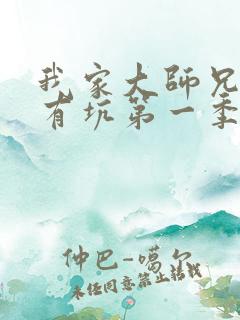 我家大师兄
有坑第一季
仲巴-噶尔
未经同意禁止转载